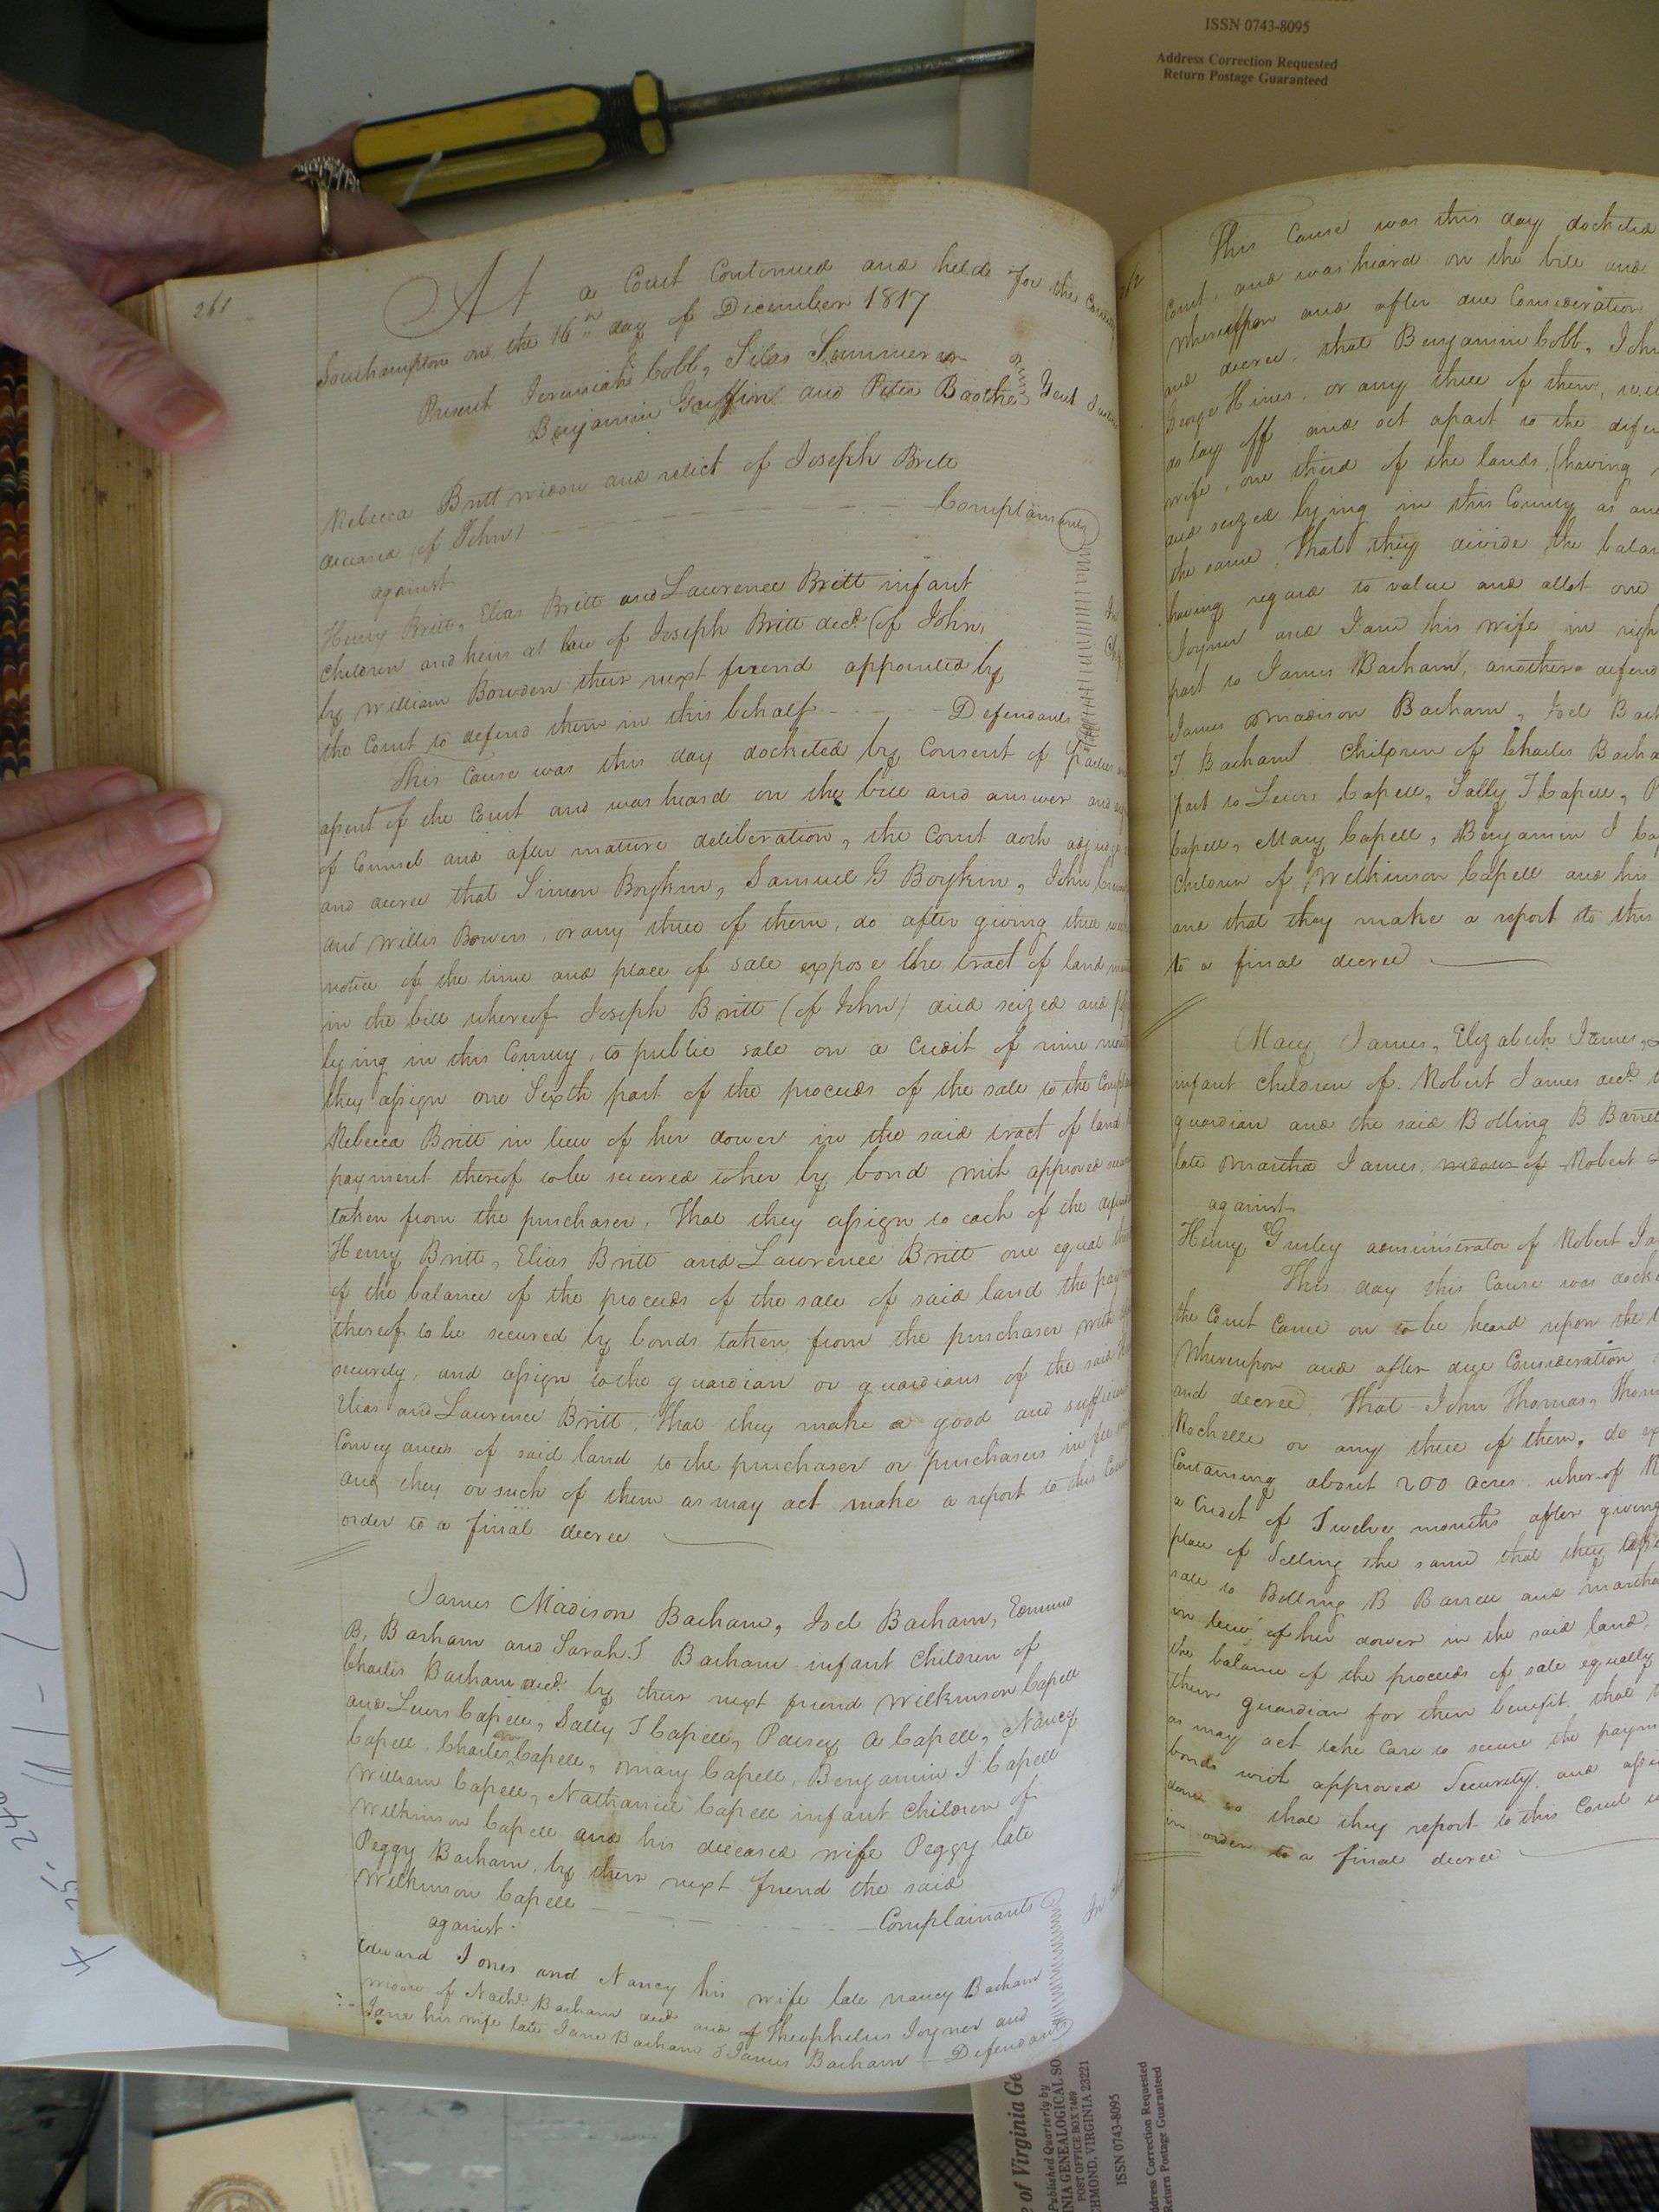 ISSN 0743-8095
Address Correction Requested
Return Postage Guaranteed
261
At a Court Continued and held for the County
Southampton on the 16th day of December 1817
Present Jeremiah Cobb, Silas Summerell
Benjamin Griffin and Peter Boothe Gent
Rebecca Britt widow and relict of Joseph Britt
deceased (of John) Complainant
against
Henry Britt, Elias Britt and Lawrence Britt infant
Children and heirs at law of Joseph Britt decd. (of John,
by William Bowden their next friend appointed by
the Court to defend them in this behalf Defendants
This Cause was this day docketed by Consent of Parties
assent of the Court and was heard on the bill and answer and
of Counsel and after mature deliberation, the Court doth adjudge
and decree that Simon Boykin, Samuel G Boykin, John
and Willis Bowers, or any three of them, do after giving three
notice of the time and place of sale expose the tract of land
in the bill whereof Joseph Britt (of John) died seized and
lying in this County, to public sale on a Credit of nine months
they assign one Sixth part of the proceeds of the sale to the
Rebecca Britt in lieu of her dower in the said tract of land
payment thereof to be secured to her by bond with approved
taken from the purchaser, That they assign to each of the
Henry Britt, Elias Britt and Lawrence Britt one equal
of the balance of the proceeds of the sale of said land the
thereof to be secured by bonds taken from the purchaser with
security, and assign to the guardian or guardians of the said
Elias and Lawrence Britt, That they make a good and sufficient
Conveyance of said land to the purchaser or purchasers in fee
and they or such of them as may act make a report to this Court
order to a final decree
James Madison Barham, Joel Barham, Edmund
B, Barham and Sarah J Barham infant Children of
Charles Barham decd. by their next friend Wilkinson Capell
and Lewis Capell, Sally T Capell, Patsey A Capell, Nancy
Capell, Charles Capell, Mary Capell, Benjamin J Capell
William Capell, Nathaniel Capell infant Children of
Wilkinson Capell and his deceased wife Peggy late
Peggy Barham, by their next friend the said
Wilkinson Capell Complainants
against
Edward Jones and Nancy his wife late Nancy Barham
widow of Nathl. Barham decd and of Theophilus Joyner and
Jane his wife late Jane Barham & James Barham Defendants
This Cause was this day docketed
Court, and was heard on the bill and
Whereupon and after due Consideration
and decree, that Benjamin Cobb, John
George Hines, or any three of them,
do lay off and set apart to the
wife, one third of the lands, (having
and seized lying in this County as
the same, That they divide the
having regard to value and allot one
Joyner and Jane his wife in
part to James Barham, another
James Madison Barham, Joel
J. Barham Children of Charles
part to Lewis Capell, Sally T Capell,
Capell, Mary Capell, Benjamin J
Children of Wilkinson Capell and his
and that they make a report to this
to a final decree
Mary James, Elizabeth James,
infant Children of Robert James decd.
guardian and the said Bolling B
late Martha James, widow of Robert
against
Henry Gurley administrator of Robert
This day this Cause was
the Court Came on to be heard upon the
Whereupon and after due Consideration
and decree, That John Thomas,
Rochelle or any three of them, do
Containing about 200 acres, whereof
a Credit of Twelve months after giving
place of Selling the same that they
sale to Bolling B Barrett and Martha
in lieu of her dower in the said land,
the balance of the proceeds of sale equally
their guardian for their benefit, that
as may act take Care to secure the
bonds with approved Security, and
done so that they report to this Court
in order to a final decree
of Virginia
Published Quarterly by
GENEALOGICAL
POST OFFICE BOX 7469
VIRGINIA 23221
ISSN 0743-8095
Address Correction Requested
Return Postage Guaranteed